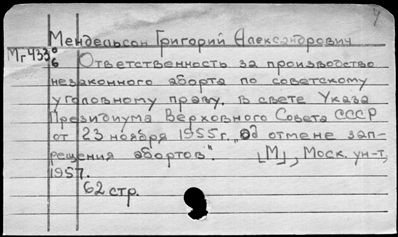 Мендельсон Григорий Александрович
Мг433°
6 Ответственность за производство
незаконного аборта по советскому
уголовному праву. В свете Указа
Президиума Верховного Совета СССР
от 23 ноября 1955г. „Об отмене зап-
рещения абортов". [М], Моск. ун-т,
1957.
62 стр.